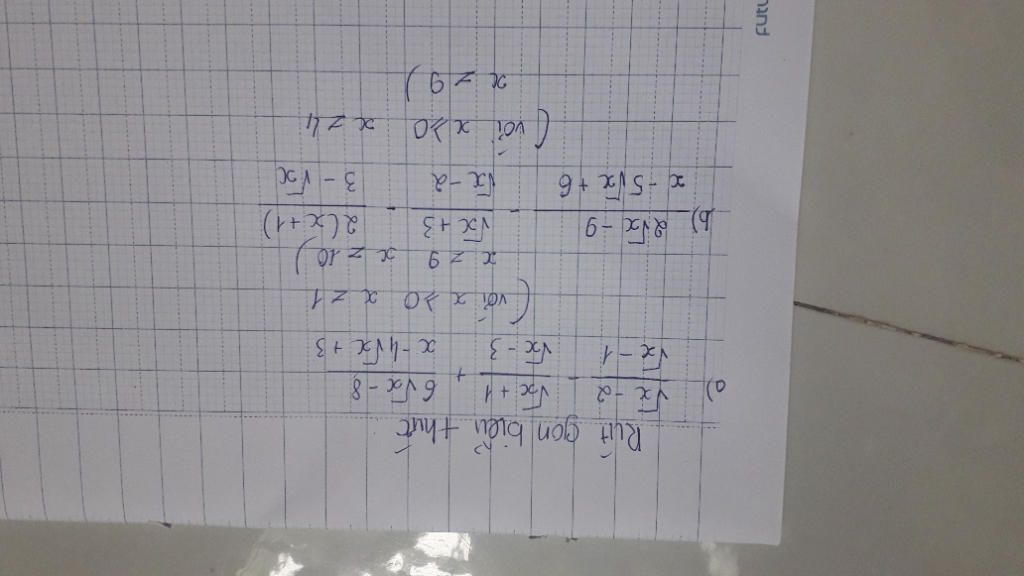 Rút gọn biểu thức
a) (√x - 2)/(√x - 1) - (√x + 1)/(√x - 3) + (6√x - 8)/(x - 4√x + 3)
(với x ≥ 0 x ≠ 1
x ≠ 9 x ≠ 10)
b) (2√x - 9)/(x - 5√x + 6) - (√x + 3)/(√x - 2) - (2(x + 1))/(3 - √x)
(với x ≥ 0 x ≠ 4
x ≠ 9)